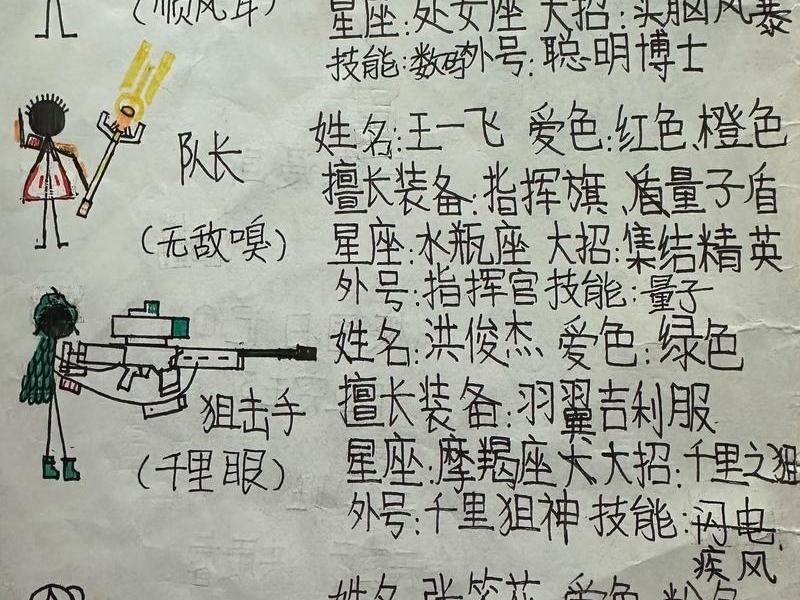 (顺风耳)
星座:处女座 大招:头脑风暴
技能:数码外号:聪明博士
队长
(无敌嗅)
姓名:王一飞 爱色:红色、橙色
擅长装备:指挥旗、盾量子盾
星座:水瓶座 大招:集结精英
外号:指挥官 技能:量子
狙击手
(千里眼)
姓名:洪俊杰 爱色:绿色
擅长装备:羽翼吉利服
星座:摩羯座大大招:千里之狙
外号:千里狙神 技能:闪电、
疾风
姓名 张笑花 爱色 粉色